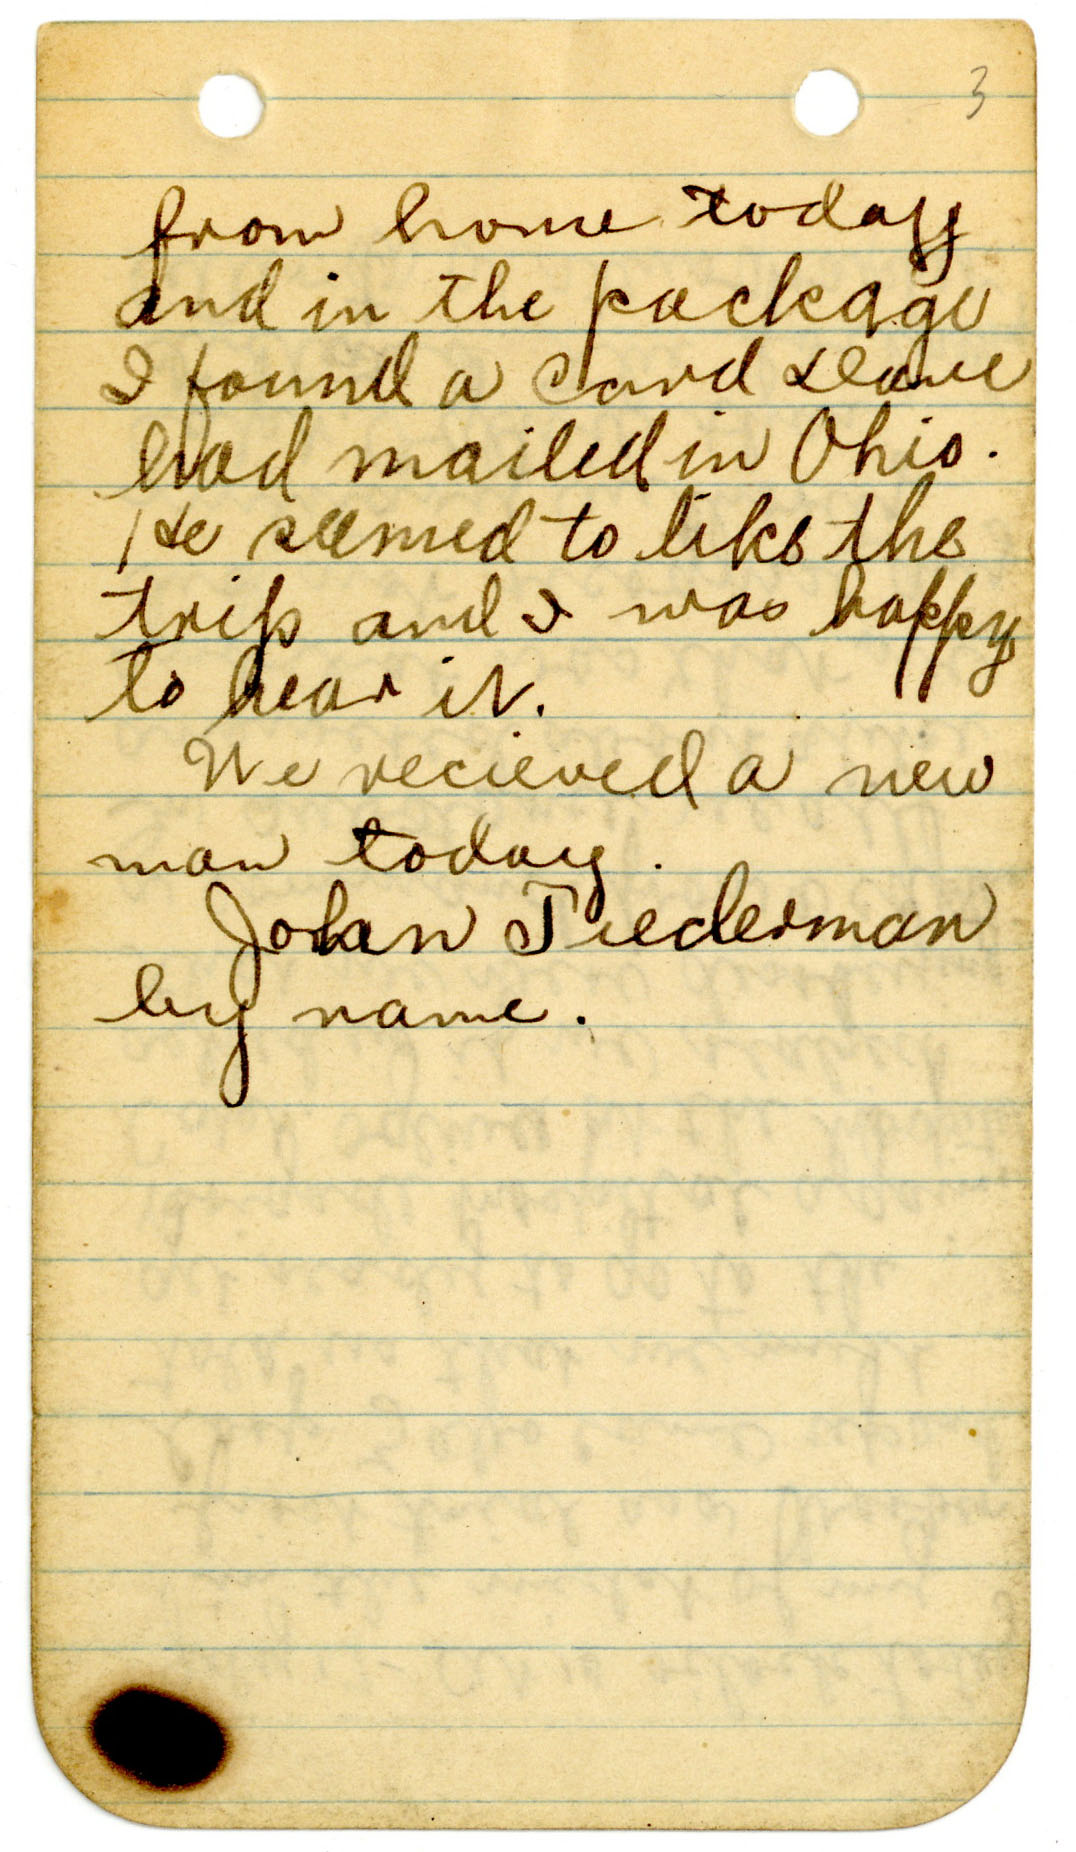 3
from home today
and in the package
I found a card
had mailed in Ohio.
He seemed to like the
trip and I was happy
to hear it.
We recieved a new
man today.
John Tiederman
by name.